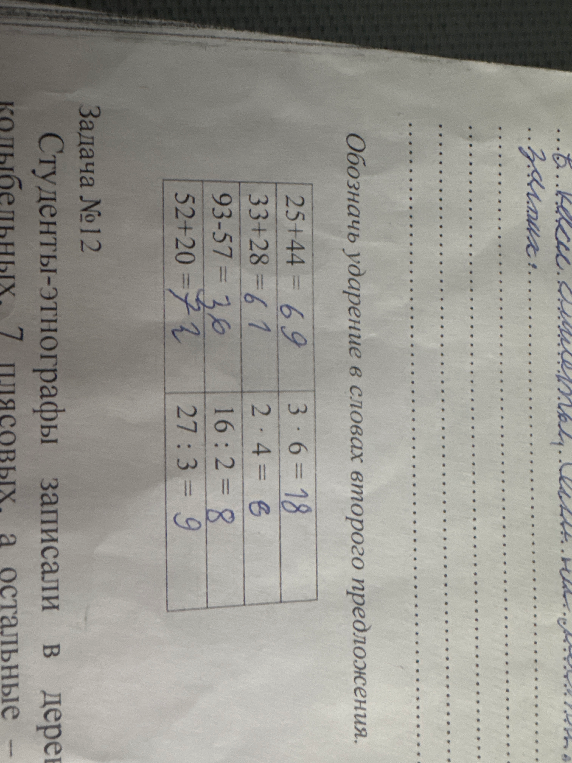 В каки
записи:
Обозначь ударение в словах второго предложения.
25+44 = 69 3 · 6 = 18
33+28 = 61 2 · 4 = 8
93-57 = 36 16 : 2 = 8
52+20 = 72 27 : 3 = 9
Задача №12
Студенты-этнографы записали в дерев
колыбельных, 7 плясовых, а остальные –